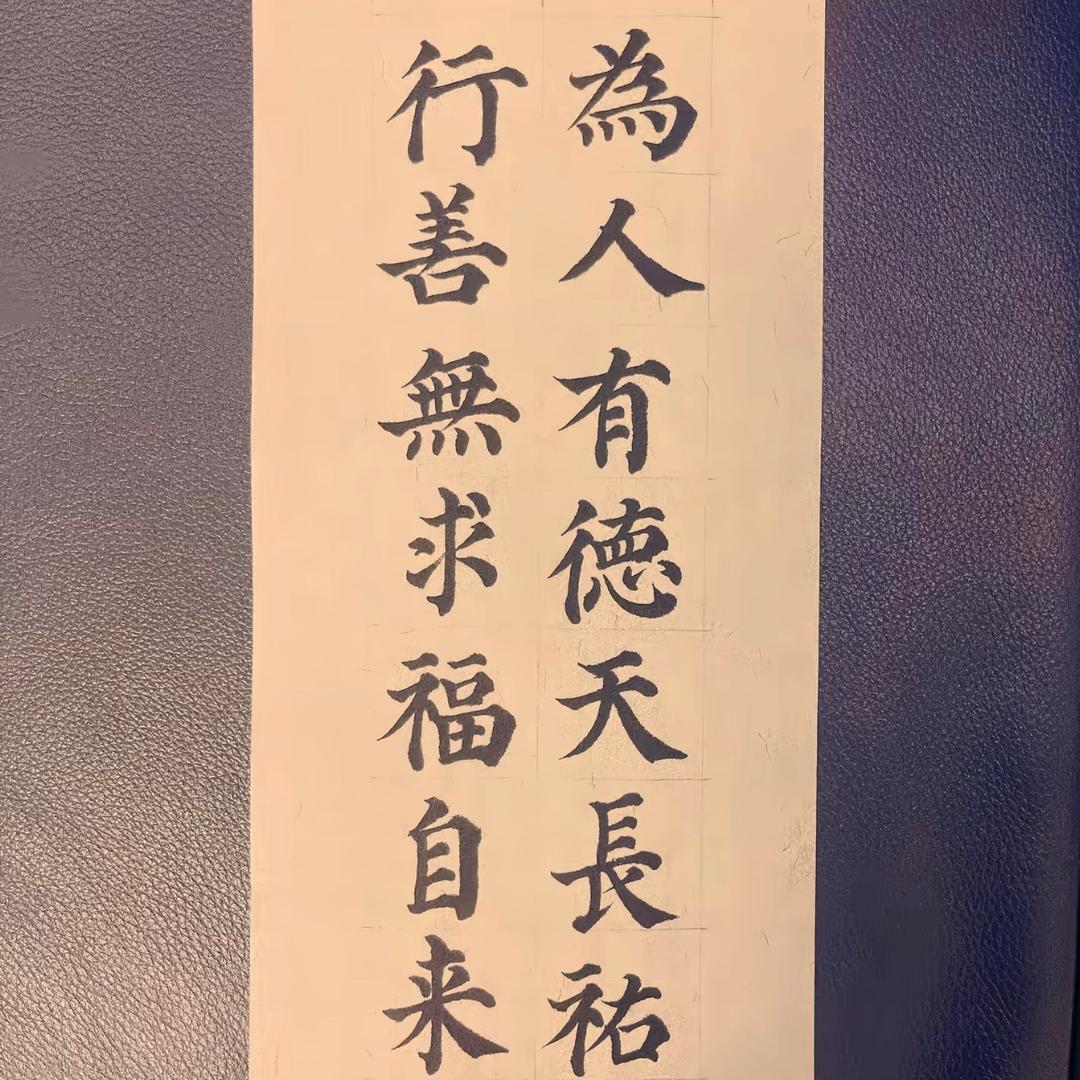 為人有德天長祐
行善無求福自来